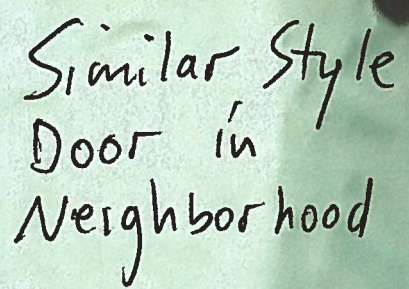 Similar Style
Door in
Neighborhood